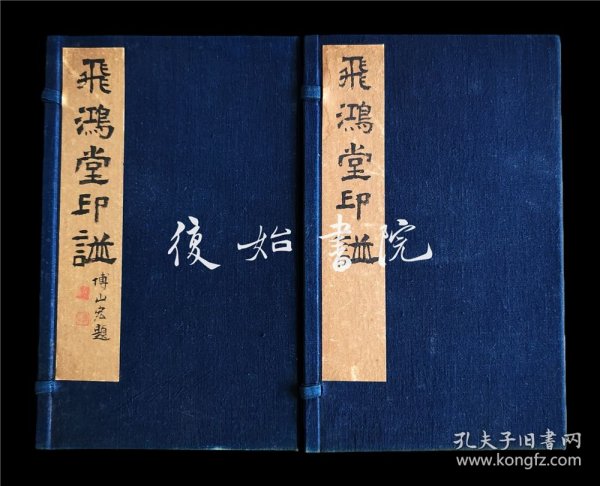 飛鴻堂印譜
博山忠題
飛鴻堂印譜
復始書院
孔夫子旧書网
www.kongfz.com